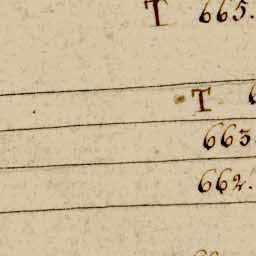 T 665.
T
663
662.